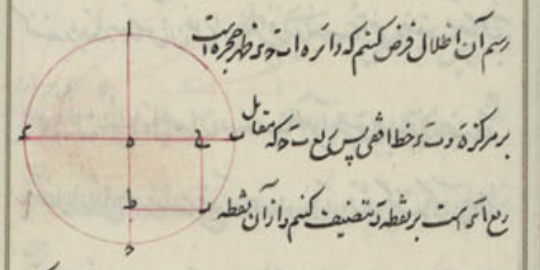 رسم آن اظلال فرض کنیم که دائره ا ت د ء ظهر حجره است
بر مرکز ه و ت ء خط افقی پس ربع ت د که مقابل
ربع است بر نقطه تنصیف کنیم و از آن نقطه
ا
ء ه ت
ط
د